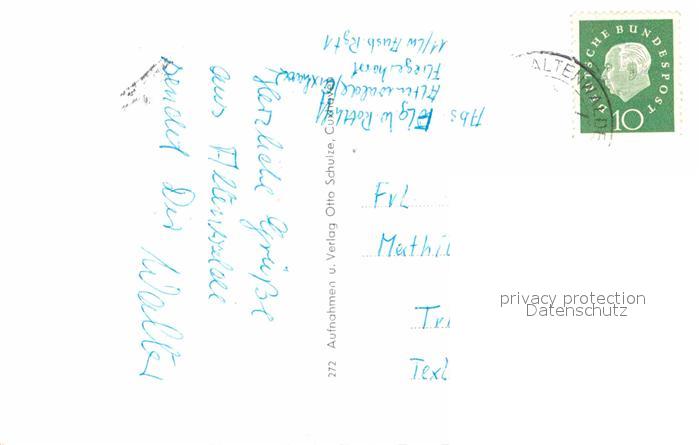 Herzliche Grüße
aus Altenwalde
sendet Dir Walter
Abs
Flg W
Altenwalde/Cuxhaven
Fliegerhorst
11/Lw Ausb Rgt 1
272 Aufnahmen u. Verlag Otto Schulze, Cuxhaven
Frl
Mathil
Tri
Text
DEUTSCHE BUNDESPOST
10
ALTENWALDE
privacy protection
Datenschutz